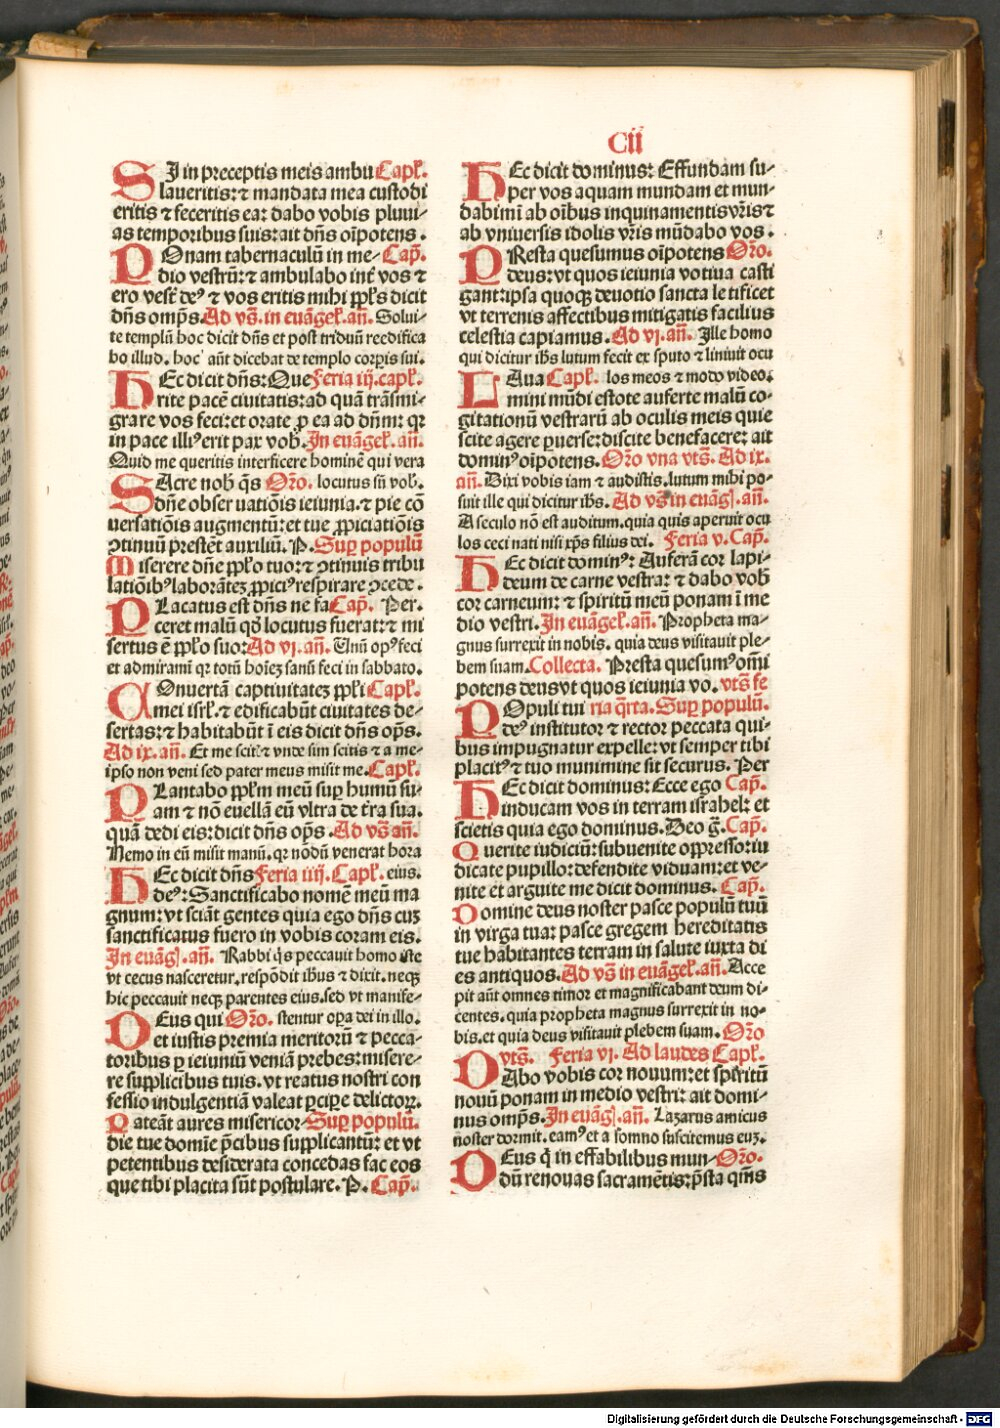 Cii
SI in preceptis meis ambu Capl̄.
laueritis: ⁊ mandata mea custodi
eritis ⁊ feceritis ea: dabo vobis pluui-
as temporibus suis: ait dn̄s oīpotens.
POnam tabernaculū in me- Cap̄.
dio vestrū: ⁊ ambulabo int̄ vos ⁊
ero vest̄ deꝰ ⁊ vos eritis mihi ppl̄s dicit
dn̄s omp̄s. Ad vs̄. in euāgel̄. an̄. Solui-
te templū hoc dicit dn̄s et post triduū reedifica
bo illud. hoc aūt dicebat de templo corpis sui.
HEc dicit dn̄s: Que Feria iij. capl̄.
rite pacē ciuitatis: ad quā trāsmi-
grare vos feci: et orate ꝓ ea ad dn̄m: qꝛ
in pace illiꝰ erit pax vob̄. In euāgel̄. an̄.
Quid me queritis interficere hominē qui vera
SAcre nob̄ q̄s Oro. locutus sū vob̄.
dn̄e obseruatiōis ieiunia. ⁊ pie cō
uersatiōis augmentū: et tue ꝓpiciatiōis
ꝯtinuū prestēt auxiliū. P. Suꝑ populū
Miserere dn̄e pplo tuo: ⁊ ꝯtinuis tribu
latiōibꝰ laborātez ꝓpiciꝰ respirare ꝯcede.
PLacatus est dn̄s ne fa Cap̄. Per.
ceret malū qd̄ locutus fuerat: ⁊ mi
sertus ē pplo suo: Ad vj. an̄. Unū opꝰ feci
et admiramī qꝛ totū hoīez sanū feci in sabbato.
COnuertā captiuitatez ppl̄i Capl̄.
mei isrl̄. ⁊ edificabūt ciuitates de-
sertas: ⁊ habitabūt ī eis dicit dn̄s op̄s.
Ad ix. an̄. Et me scit̄ ⁊ vnde sim scitis ⁊ a me-
ipso non veni sed pater meus misit me. Capl̄.
PLantabo ppl̄m meū suꝑ humū su-
am ⁊ nō euellā eū vltra de t̄ra sua.
quā dedi eis: dicit dn̄s op̄s. Ad vs̄ an̄.
Nemo in eū misit manū. qꝛ nōdū venerat hora
HEc dicit dn̄s Feria iiij. Capl̄. eius.
deꝰ: Sanctificabo nomē meū ma
gnum: vt sciāt gentes quia ego dn̄s cuꝫ
sanctificatus fuero in vobis coram eis.
In euāḡl. an̄. Rabbi q̄s peccauit homo iste
vt cecus nasceretur. respōdit ih̄us ⁊ dixit. neqꝫ
hic peccauit neqꝫ parentes eius. sed vt manife-
DEus qui Oro. stentur oꝑa dei in illo.
et iustis premia meritorū ⁊ pecca-
toribus ꝑ ieiuniū veniā prebes: misere-
re supplicibus tuis. vt reatus nostri con
fessio indulgentiā valeat ꝑciꝑe delictoꝝ.
Pateāt aures misericor- Suꝑ populū.
die tue domie p̄cibus supplicantū: et vt
petentibus desiderata concedas fac eos
que tibi placita sūt postulare. P. Cap̄.
HEc dicit dominus: Effundam su-
per vos aquam mundam et mun-
dabimī ab oībus inquinamentis vr̄is ⁊
ab vniuersis idolis vr̄is mūdabo vos.
PResta quesumus oīpotens Oro.
deus: vt quos ieiunia votiua casti
gant: ipsa quoqꝫ deuotio sancta letificet
vt terrenis affectibus mitigatis facilius
celestia capiamus. Ad vj. an̄. Ille homo
qui dicitur ih̄s lutum fecit ex sputo ⁊ liniuit ocu
LAua Capl̄. los meos ⁊ modo video.
mini mūdi estote auferte malū co-
gitationū vestrarū ab oculis meis quie
scite agere ꝑuerse: discite benefacere: ait
dominꝰ oīpotens. Oro vna vts̄. Ad ix.
an̄. Dixi vobis iam ⁊ audistis. lutum mihi po-
suit ille qui dicitur ih̄s. Ad vs̄ in euāḡl. an̄.
A seculo nō est auditum. quia quis aperuit ocu
los ceci nati nisi xp̄s filius dei. Feria v. Cap̄.
HEc dicit dominꝰ: Auferā cor lapi-
deum de carne vestra: ⁊ dabo vob̄
cor carneum: ⁊ spiritū meū ponam ī me
dio vestri. In euāgel̄. an̄. Propheta ma-
gnus surrexit in nobis. quia deus visitauit ple-
bem suam. Collecta. Presta quesumꝰ om̄i
potens deus vt quos ieiunia vo. vts̄ fe
POpuli tui ria q̄rta. Suꝑ populū.
deꝰ institutor ⁊ rector peccata qui-
bus impugnatur expelle: vt semper tibi
placitꝰ ⁊ tuo munimine sit securus. Per
HEc dicit dominus: Ecce ego Cap̄.
inducam vos in terram israhel: et
scietis quia ego dominus. Deo ḡ. Cap̄.
Querite iudiciū: subuenite oppresso: iu
dicate pupillo: defendite viduam: et ve-
nite et arguite me dicit dominus. Cap̄.
Domine deus noster pasce populū tuū
in virga tua: pasce gregem hereditatis
tue habitantes terram in salute iuxta di
es antiquos. Ad vs̄ in euāgel̄. an̄. Acce
pit aūt omnes timor et magnificabant deum di-
centes. quia propheta magnus surrexit in no-
bis. et quia deus visitauit plebem suam. Oro
vts̄. Feria vj. Ad laudes Capl̄.
DAbo vobis cor nouum: et spiritū
nouū ponam in medio vestri: ait domi-
nus omp̄s. In euāḡl. an̄. Lazarus amicus
noster dormit. eamꝰ et a somno suscitemus euꝫ.
DEus q̄ in effabilibus mun- Oro.
dū renouas sacramētis: p̄sta qm̄s
Digitalisierung gefördert durch die Deutsche Forschungsgemeinschaft - DFG